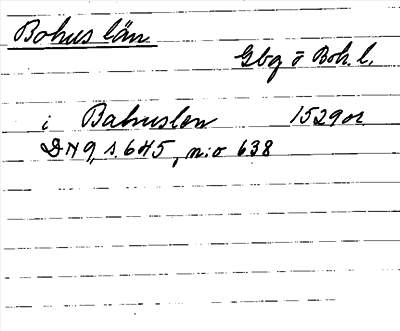 Bohus län
Gbg o Boh l.
i Bahuslen 1529 or
DN 9, s. 645, n:o 638